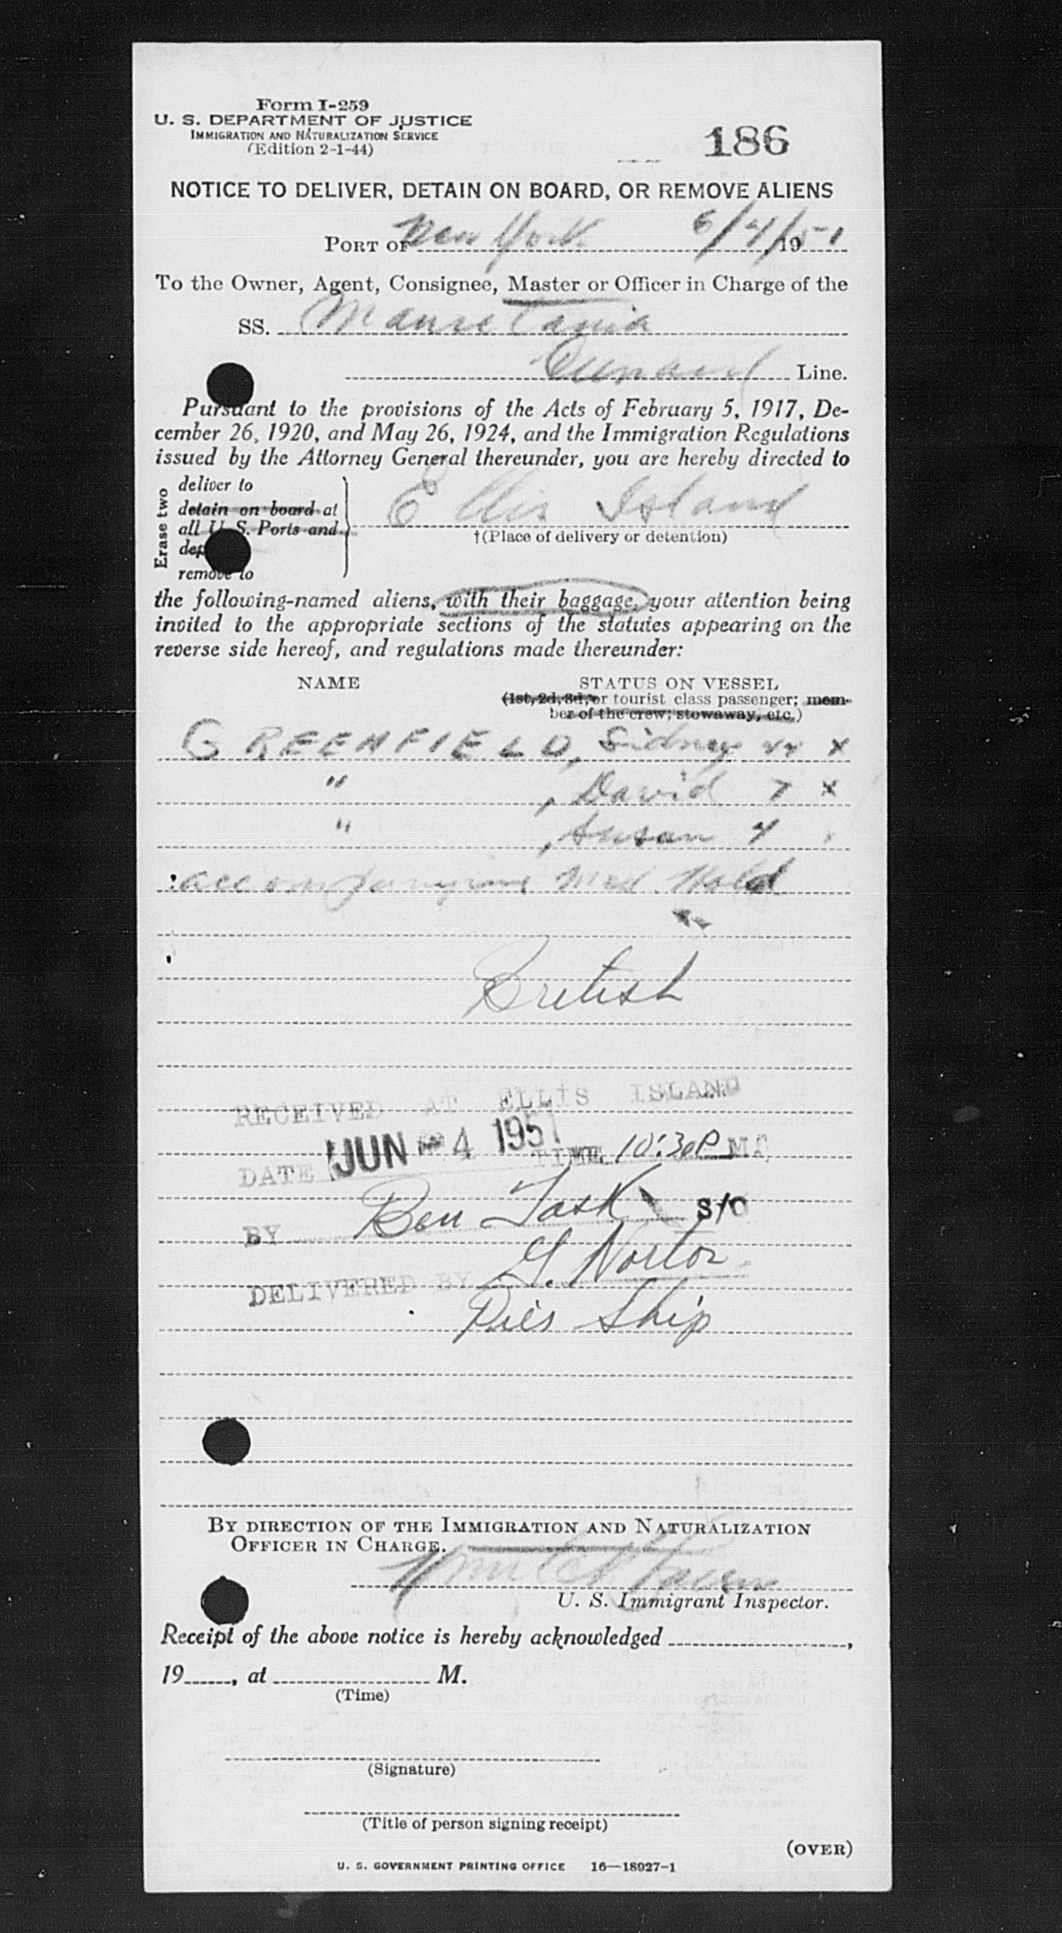 Form I-259
U. S. DEPARTMENT OF JUSTICE
IMMIGRATION AND NATURALIZATION SERVICE
(Edition 2-1-44)
186
NOTICE TO DELIVER, DETAIN ON BOARD, OR REMOVE ALIENS
PORT OF New York 6/4/1951
To the Owner, Agent, Consignee, Master or Officer in Charge of the
SS. Mauretania
Cunard Line.
Pursuant to the provisions of the Acts of February 5, 1917, De-
cember 26, 1920, and May 26, 1924, and the Immigration Regulations
issued by the Attorney General thereunder, you are hereby directed to
Erase two
deliver to
detain on board at
all U. S. Ports and
remove to
Ellis Island
†(Place of delivery or detention)
the following-named aliens, with their baggage, your attention being
invited to the appropriate sections of the statutes appearing on the
reverse side hereof, and regulations made thereunder:
NAME STATUS ON VESSEL
(1st, 2d, 3d, or tourist class passenger; mem-
ber of the crew; stowaway, etc.)
GREENFIELD, Sidney x
" , David 7 x
" , Susan 4
accompanying Med. Hold
British
RECEIVED AT ELLIS ISLAND
DATE JUN -4 1951 TIME 10:30P M
BY Ben Task S/O
DELIVERED BY G. Norton
Ship
BY DIRECTION OF THE IMMIGRATION AND NATURALIZATION
OFFICER IN CHARGE.
U. S. Immigrant Inspector.
Receipt of the above notice is hereby acknowledged
19 , at M.
(Time)
(Signature)
(Title of person signing receipt)
(OVER)
U. S. GOVERNMENT PRINTING OFFICE 16—18927-1